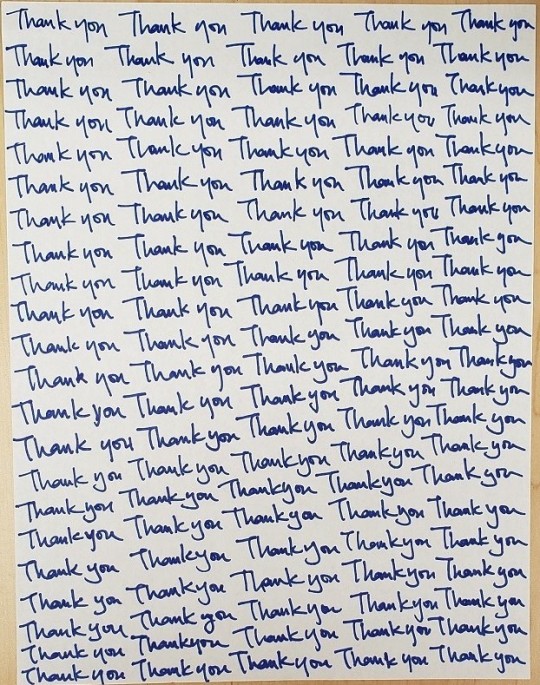 Thank you Thank you Thank you Thank you Thank you
Thank you Thank you Thank you Thank you Thank you
Thank you Thank you Thank you Thank you Thank you
Thank you Thank you Thank you Thank you Thank you
Thank you Thank you Thank you Thank you Thank you
Thank you Thank you Thank you Thank you Thank you
Thank you Thank you Thank you Thank you Thank you
Thank you Thank you Thank you Thank you Thank you
Thank you Thank you Thank you Thank you Thank you
Thank you Thank you Thank you Thank you Thank you
Thank you Thank you Thank you Thank you Thank you
Thank you Thank you Thank you Thank you Thank you
Thank you Thank you Thank you Thank you Thank you
Thank you Thank you Thank you Thank you Thank you
Thank you Thank you Thank you Thank you Thank you
Thank you Thank you Thank you Thank you Thank you
Thank you Thank you Thank you Thank you Thank you
Thank you Thank you Thank you Thank you Thank you
Thank you Thank you Thank you Thank you Thank you
Thank you Thank you Thank you Thank you Thank you
Thank you Thank you Thank you Thank you Thank you
Thank you Thank you Thank you Thank you Thank you